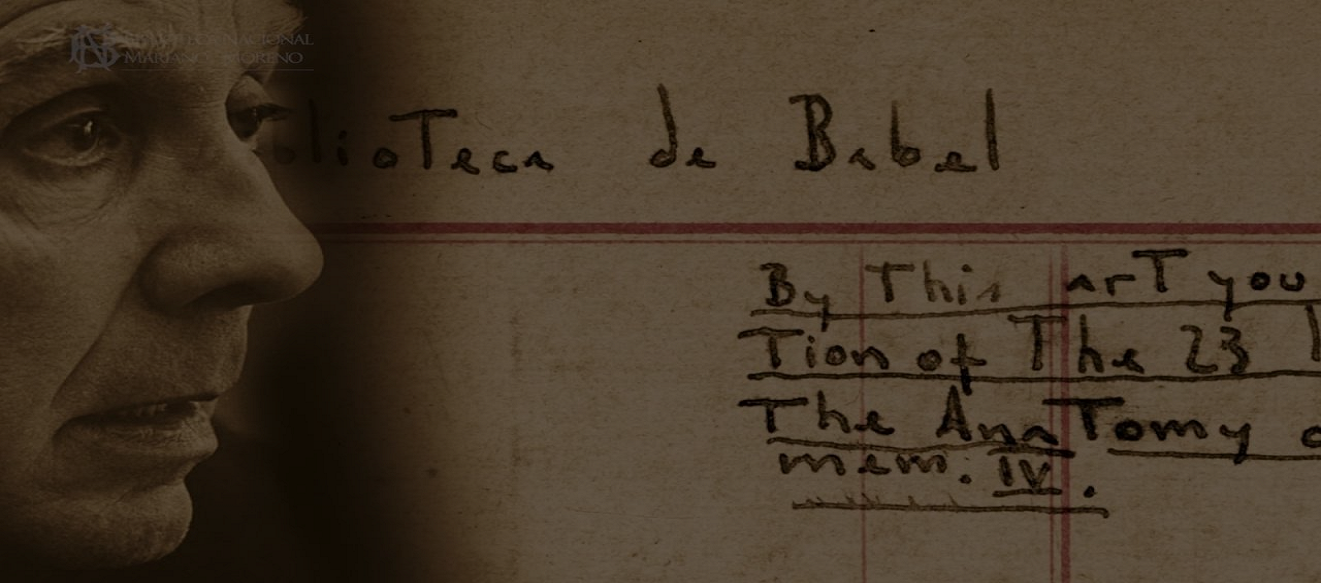 NACIONAL
MARIANO MORENO
blioTeca de Babel
By This arT you
Tion of The 23
The AnaTomy
mem. IV.